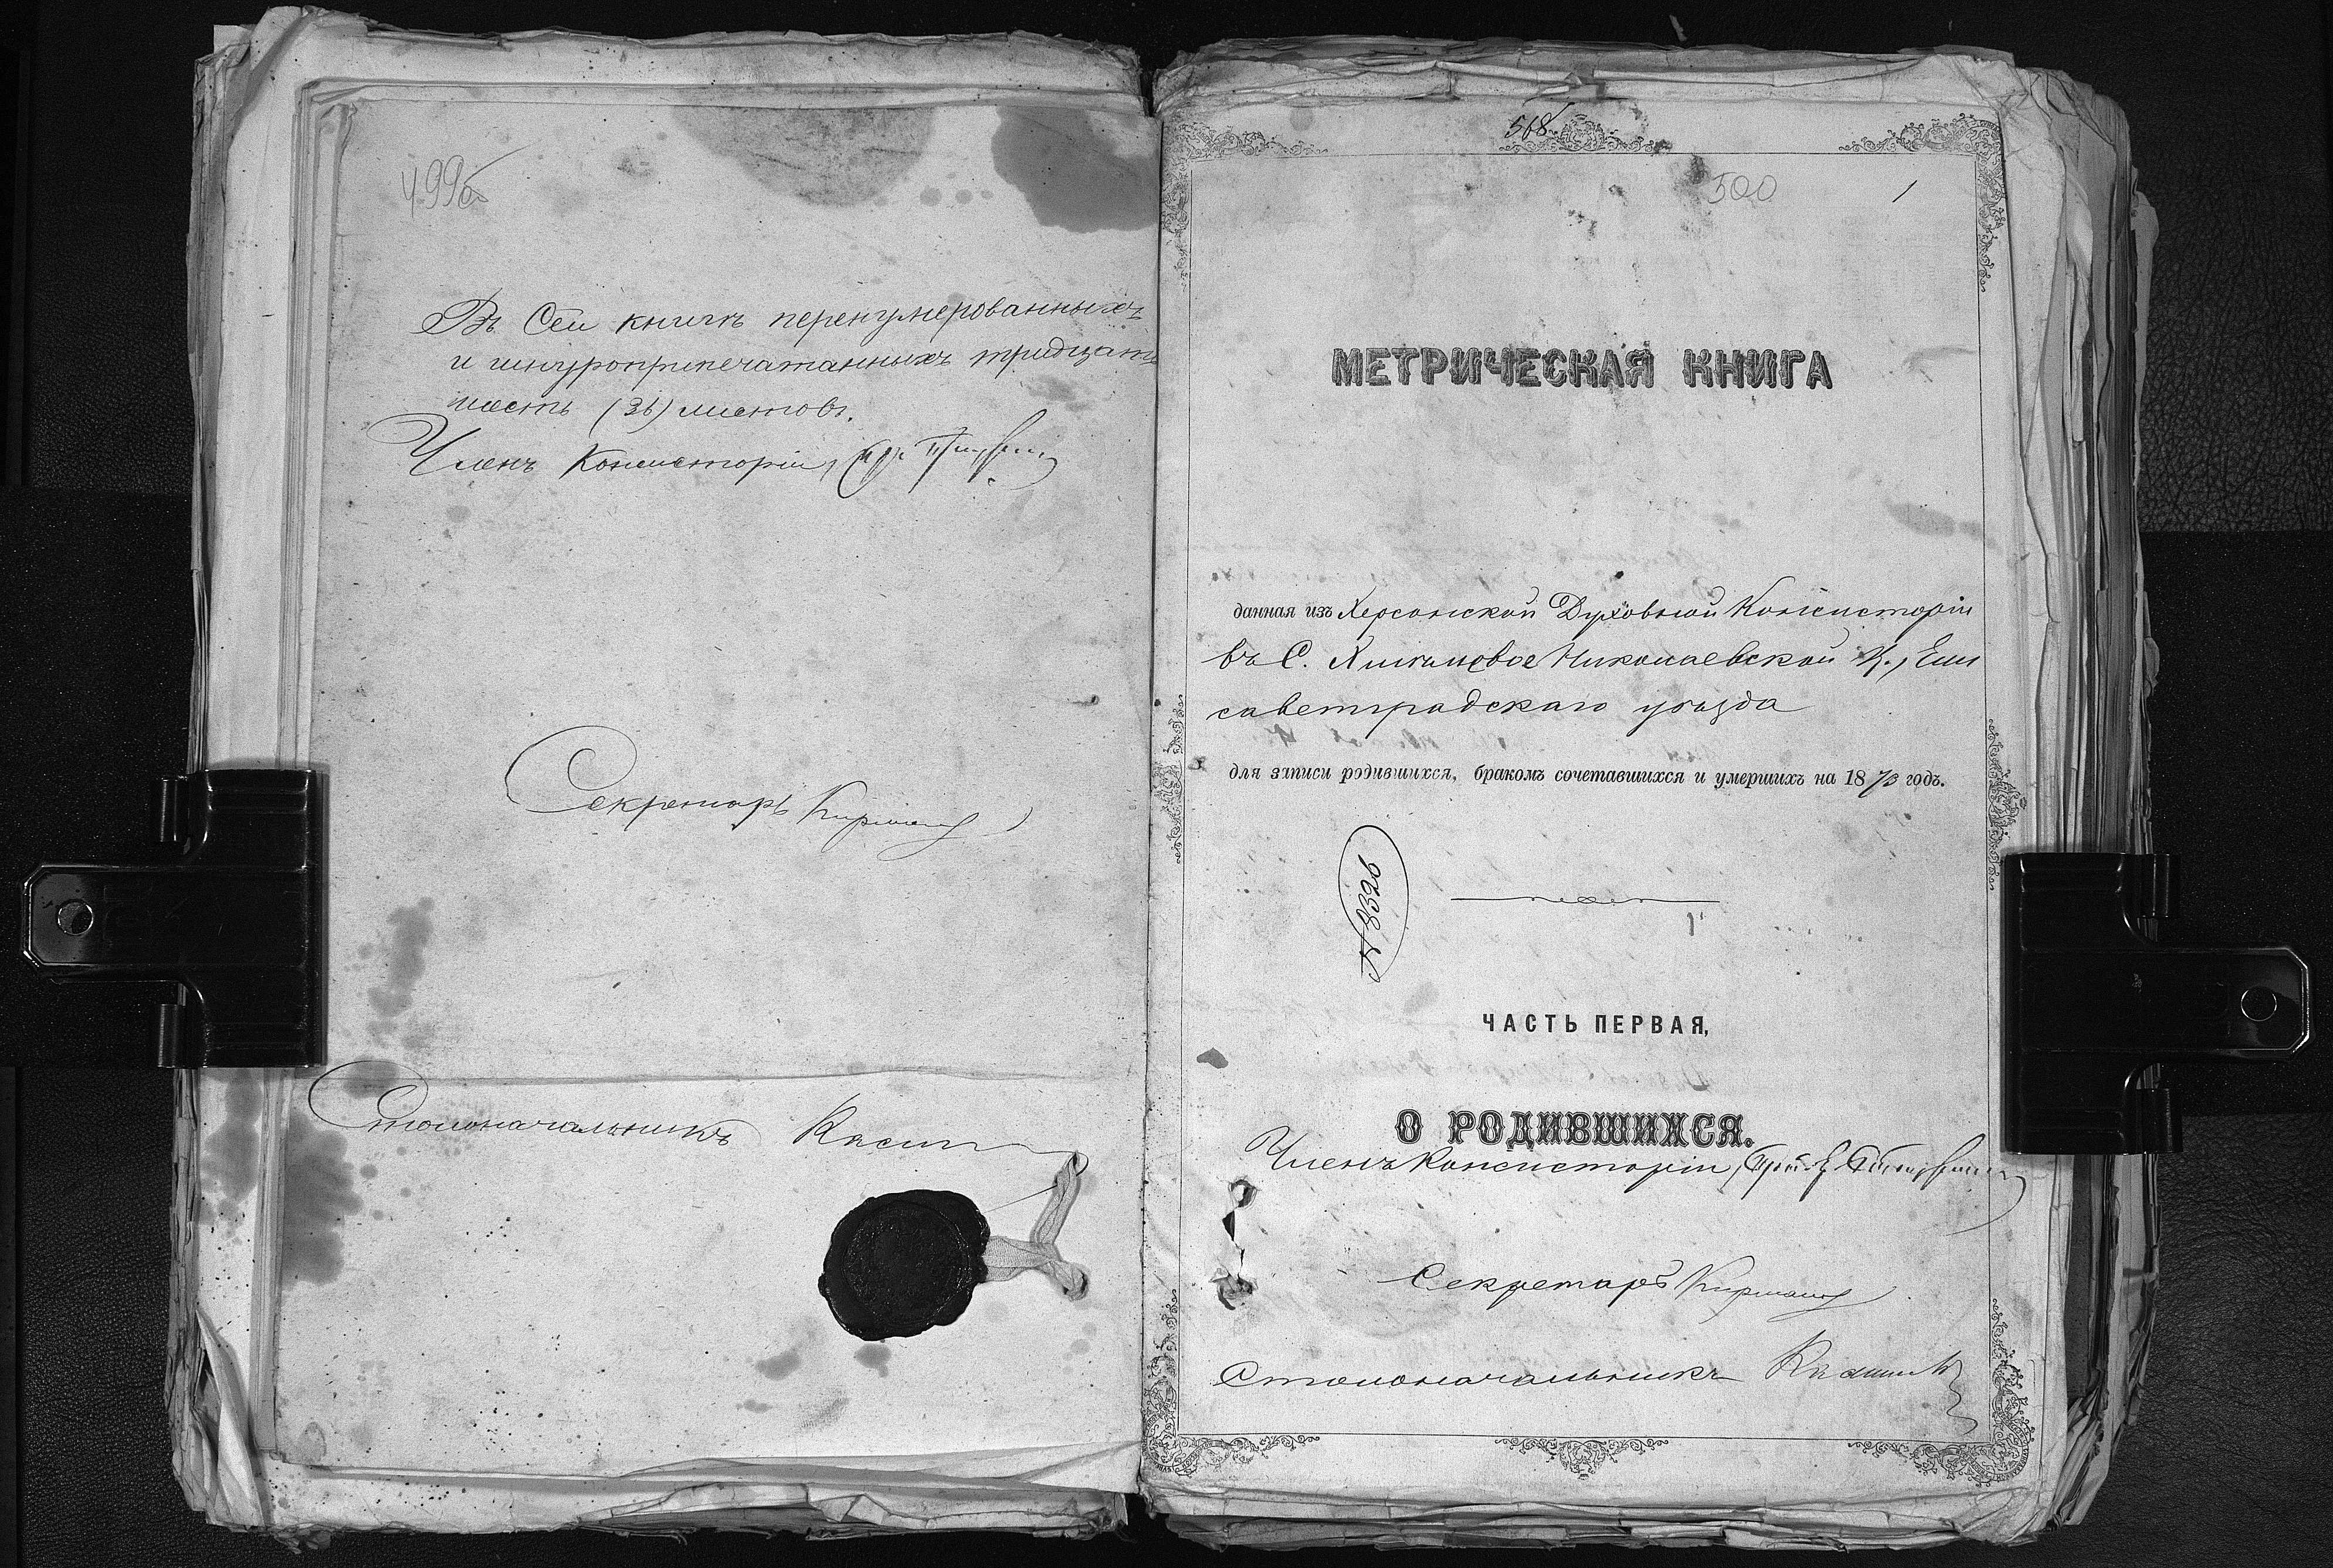 499об
Въ сей книгѣ перенумерованныхъ
и шнуроприпечатанныхъ тридцать
шесть (36) листовъ.
Членъ Консисторіи,
Секретарь
Столоначальникъ
568
500
1
МЕТРИЧЕСКАЯ КНИГА
данная изъ Херсонской Духовной Консисторіи
въ С. Николаевской Ц., Ели
саветградскаго уѣзда
для записи родившихся, бракомъ сочетавшихся и умершихъ на 1873 годъ.
№ 8326
ЧАСТЬ ПЕРВАЯ,
О РОДИВШИХСЯ.
Членъ Консисторіи,
Секретарь
Столоначальникъ